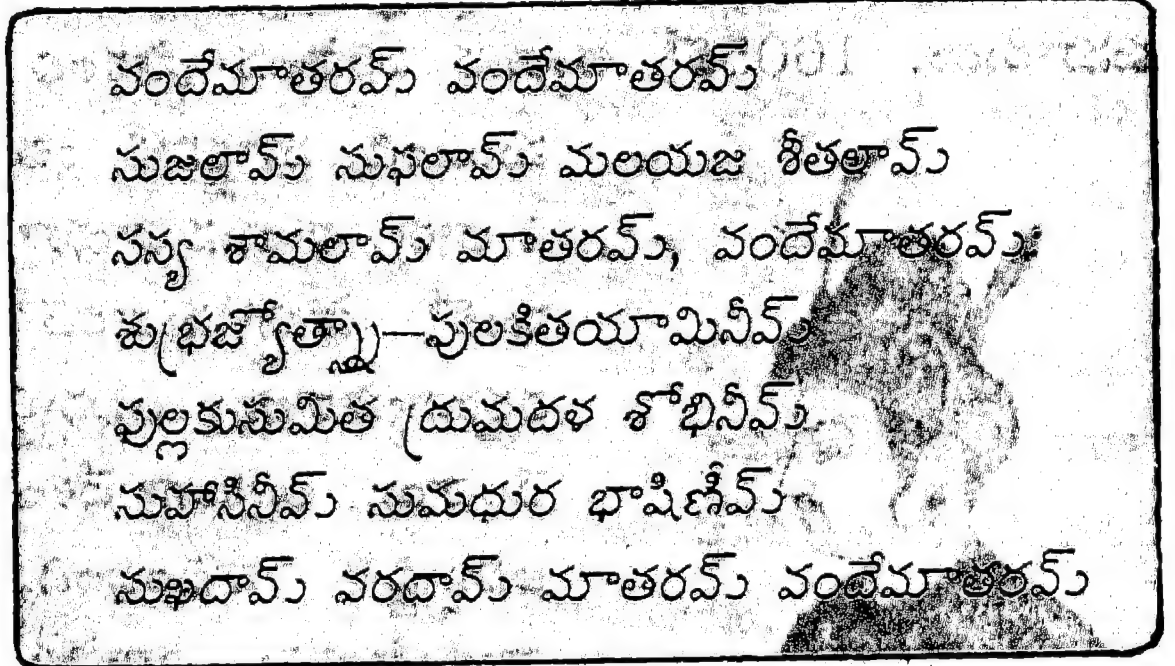 వందేమాతరమ్ వందేమాతరమ్
సుజలామ్ సుఫలామ్ మలయజ శీతలామ్
సస్య శామలామ్ మాతరమ్, వందేమాతరమ్;
శుభ్రజ్యోత్స్నా—పులకితయామినీమ్
పుల్లకుసుమిత ద్రుమదళ శోభినీమ్
సుహాసినీమ్ సుమధుర భాషిణీమ్
సుఖదామ్ వరదామ్ మాతరమ్ వందేమాతరమ్